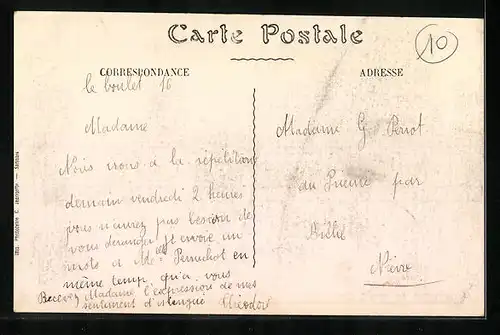 Carte Postale
10
CORRESPONDANCE
ADRESSE
le boulet 16
Madame
Nous vous a la répétition
demain vendredi 2 heures
vous n'aurez pas besoin de
vous déranger j'envoie un
mots a Me Perruchot en
même temp qu'a vous
Recevez Madame l'expression de mes
sentiment
Théodore
Madame G Perrot
au Prieuré par
Nièvre